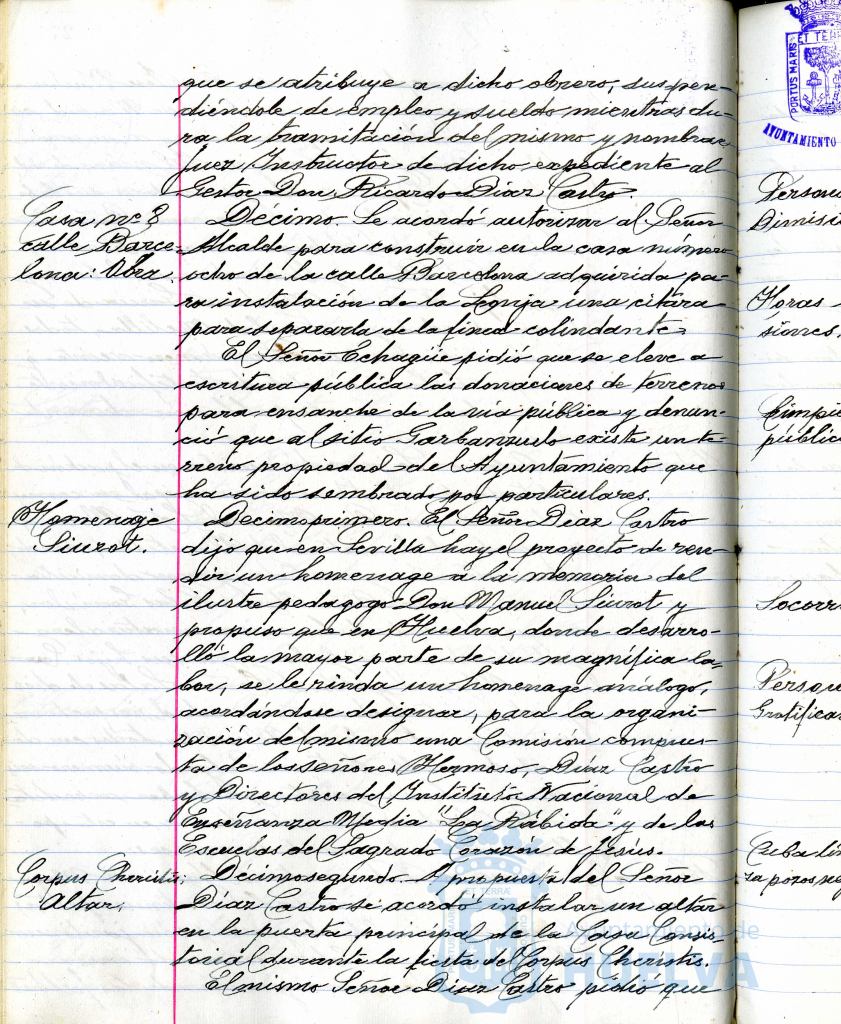 que se atribuye a dicho obrero, suspen-
diéndole de empleo y sueldo mientras du-
ra la tramitación del mismo y nombrar
Juez Instructor de dicho expediente al
Gestor Don Ricardo Díaz Castro.
Casa nº 8
calle Barce-
lona: Obra.
Décimo. Se acordó autorizar al Señor
Alcalde para construir en la casa número
ocho de la calle Barcelona adquirida pa-
ra instalación de la Lonja una citara
para separarla de la finca colindante.
El Señor Echagüe pidió que se eleve a
escritura pública las donaciones de terrenos
para ensanche de la vía pública y denun-
ció que al sitio Garbanzuelo existe un te-
rreno propiedad del Ayuntamiento que
ha sido sembrado por particulares.
Homenage
Siurot.
Decimoprimero. El Señor Díaz Castro
dijo que en Sevilla hay el proyecto de ren-
dir un homenage a la memoria del
ilustre pedagogo Don Manuel Siurot y
propuso que en Huelva, donde desarro-
lló la mayor parte de su magnífica la-
bor, se le rinda un homenage análogo,
acordándose designar, para la organi-
zación del mismo una Comisión compues-
ta de los señores Hermoso, Díaz Castro
y Directores del Instituto Nacional de
Enseñanza Media "La Rábida" y de las
Escuelas del Sagrado Corazón de Jesús.
Corpus Christis:
Altar.
Décimosegundo. A propuesta del Señor
Díaz Castro se acordó instalar un altar
en la puerta principal de la Casa Consis-
torial durante la fiesta del Corpus Christis.
El mismo Señor Díaz Castro pidió que
PORTUS MARIS
ET TERR
AYUNTAMIENTO
Person
Dimisi
Horas
siones.
Limpie
públic
Socorr
Person
Gratifica
Cuba li
za pozos neg
Ayuntamiento de
HUELVA